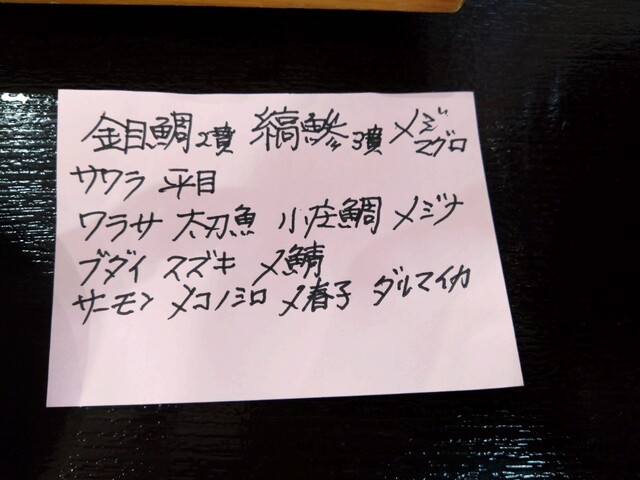 金目鯛2貫 縞鯵3貫 メジマグロ
サワラ 平目
ワラサ 太刀魚 小庄鯛 メジナ
ブダイ スズキ 〆鯖
サーモン 〆コノシロ 〆春子 ダルマイカ